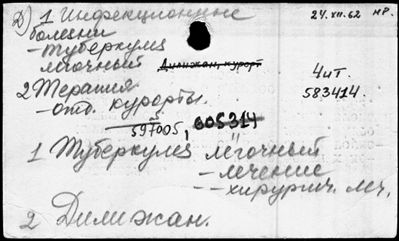 Д) 1 Инфекционные
24.XII.62 нр.
болезни
- туберкулез
легочный Дилижан, курорт
Чит.
2 Терапия
583414.
- отд. курорты.
597005, 605314
1 Туберкулез лёгочный
- лечение
-- хирургич. леч.
2 Дилижан.